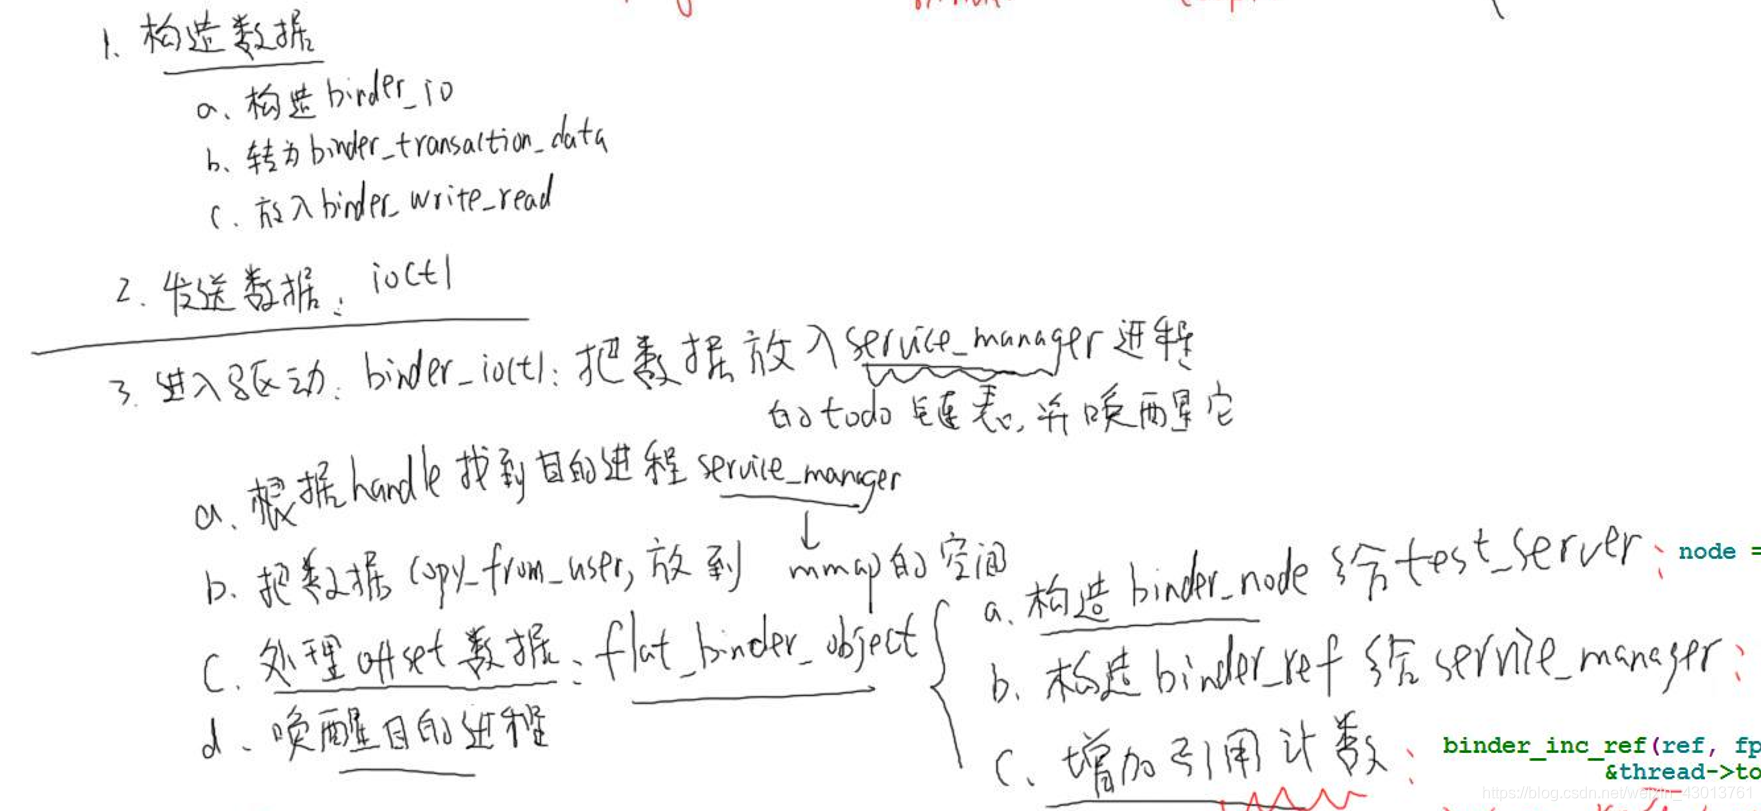 1. 构造数据
a. 构造binder_io
b. 转为binder_transaction_data
c. 放入binder_write_read
2. 发送数据: ioctl
3. 进入驱动: binder_ioctl: 把数据放入service_manager进程
的todo链表, 并唤醒它
a. 根据handle找到目的进程service_manager
b. 把数据copy_from_user, 放到 mmap的空间
c. 处理offset数据: flat_binder_object
d. 唤醒目的进程
a. 构造binder_node给test_server: node =
b. 构造binder_ref给service_manager:
c. 增加引用计数: binder_inc_ref(ref, fp
&thread->to
https://blog.csdn.net/weixin_43013761